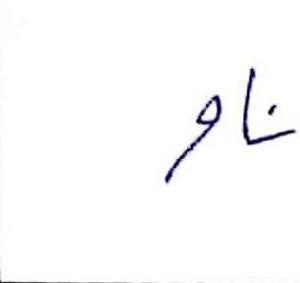 ناو